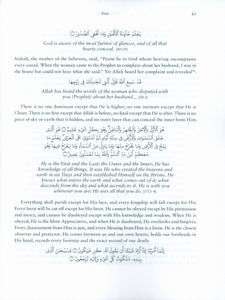 Fear
81
يَعْلَمُ خَائِنَةَ الْأَعْيُنِ وَمَا تُخْفِي الصُّدُورُ
God is aware of the most furtive of glances, and of all that
hearts conceal. (40:19)
Aishah, the mother of the believers, said, "Praise be to God whose hearing encompasses
every sound. When the woman came to the Prophet to complain about her husband, I was in
the house but could not hear what she said." Yet Allah heard her complaint and revealed:
قَدْ سَمِعَ اللَّهُ قَوْلَ الَّتِي تُجَادِلُكَ فِي زَوْجِهَا
Allah has heard the words of the woman who disputed with
you [Prophet] about her husband...
There is no one dominant except that He is higher; no one intimate except that He is
Closer. There is no first except that Allah is before, and no last except that He is after. There is no
piece of sky or earth that is hidden, and no outer layer that can conceal the inner from Him.
He is the First and the Last; the Outer and the Inner; He has
knowledge of all things. It was He who created the heavens and
earth in six Days and then established Himself on the throne. He
knows what enters the earth and what comes out of it; what
descends from the sky and what ascends to it. He is with you
wherever you are; He sees all that you do. (57:3-4)
Everything shall perish except for His face, and every kingship will fall except for His.
Every favor will be cut off except for His favor. He cannot be obeyed except by His permission
and mercy, and cannot be disobeyed except with His knowledge and wisdom. When He is
obeyed, He is the Most Appreciative, and when He is disobeyed, He overlooks and forgives.
Every chastisement from Him is just, and every blessing from Him is a favor. He is the closest
observer and protector. He comes between us and our own hearts, holds our forelocks in
His hand, records every footstep and the exact second of our death.